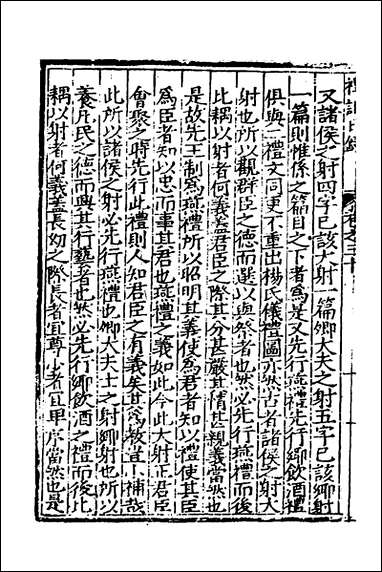 又諸侯之射四字已該大射一篇卿大夫之射五字已該鄉射
一篇則惟係之篇目之下者爲是又先行燕禮先行鄉飲酒禮
俱與二禮文同更不重出楊氏儀禮圖亦然古者諸侯之射大
射也所以觀群臣之德而選以與祭者也然必先行燕禮而後
比耦以射者何義蓋君臣之際其分甚嚴其情甚親義當然也
是故先王制爲燕禮所以昭明其義使爲君者知以禮使其臣
爲臣者知以忠而事其君也燕禮之義如此今此大射正君臣
會聚之時先行此禮則人知君臣之有義矣其爲教豈小補哉
此所以諸侯之射必先行燕禮也卿大夫士之射鄉射也所以
養庶民之德而興其行藝者也然必先行鄉飲酒之禮而後比
耦以射者何義蓋長幼之際長者宜尊少者宜卑序當然也是